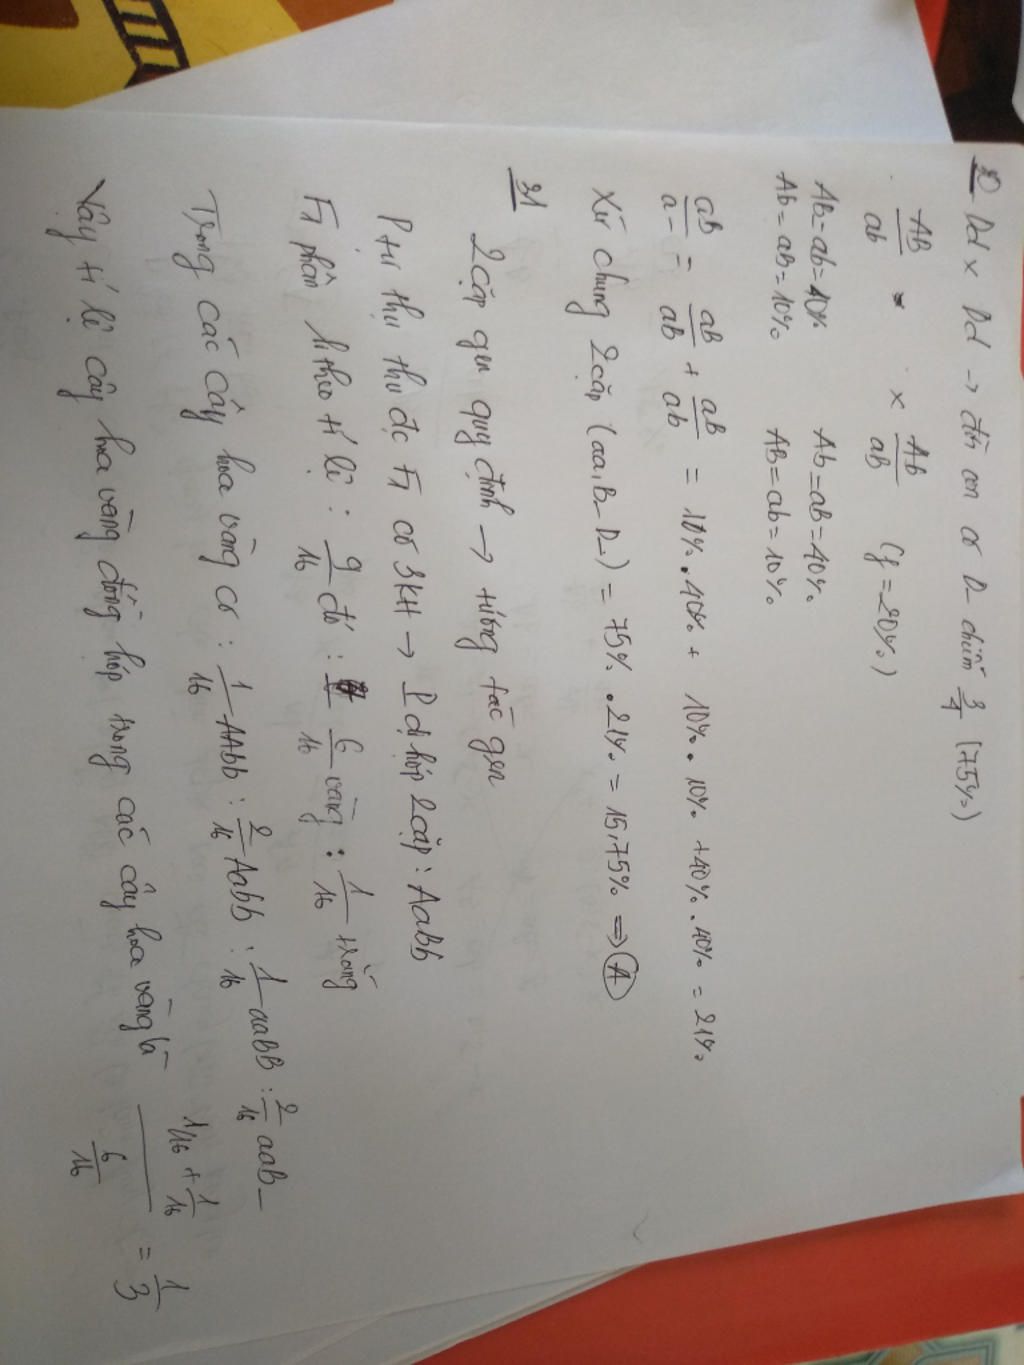 30 Dd x Dd → đời con có D- chiếm 3/4 (75%)
AB/ab x Ab/aB (f = 20%)
AB = ab = 40% Ab = aB = 40%
Ab = aB = 10% AB = ab = 10%
aB/a- = aB/aB + aB/ab = 10% . 40% + 10% . 10% + 40% . 40% = 21%
Xét chung 2 cặp (aa, B- D-) = 75% . 21% = 15,75% ⇒ A
31
2 cặp gen quy định → tương tác gen
P tự thụ thu đc F1 có 3KH → P dị hợp 2 cặp : AaBb
F1 phân li theo tỉ lệ : 9/16 đỏ : 6/16 vàng : 1/16 trắng
Trong các cây hoa vàng có : 1/16 AAbb : 2/16 Aabb : 1/16 aaBB : 2/16 aaB-
Vậy tỉ lệ cây hoa vàng đồng hợp trong các cây hoa vàng là (1/16 + 1/16) / (6/16) = 1/3